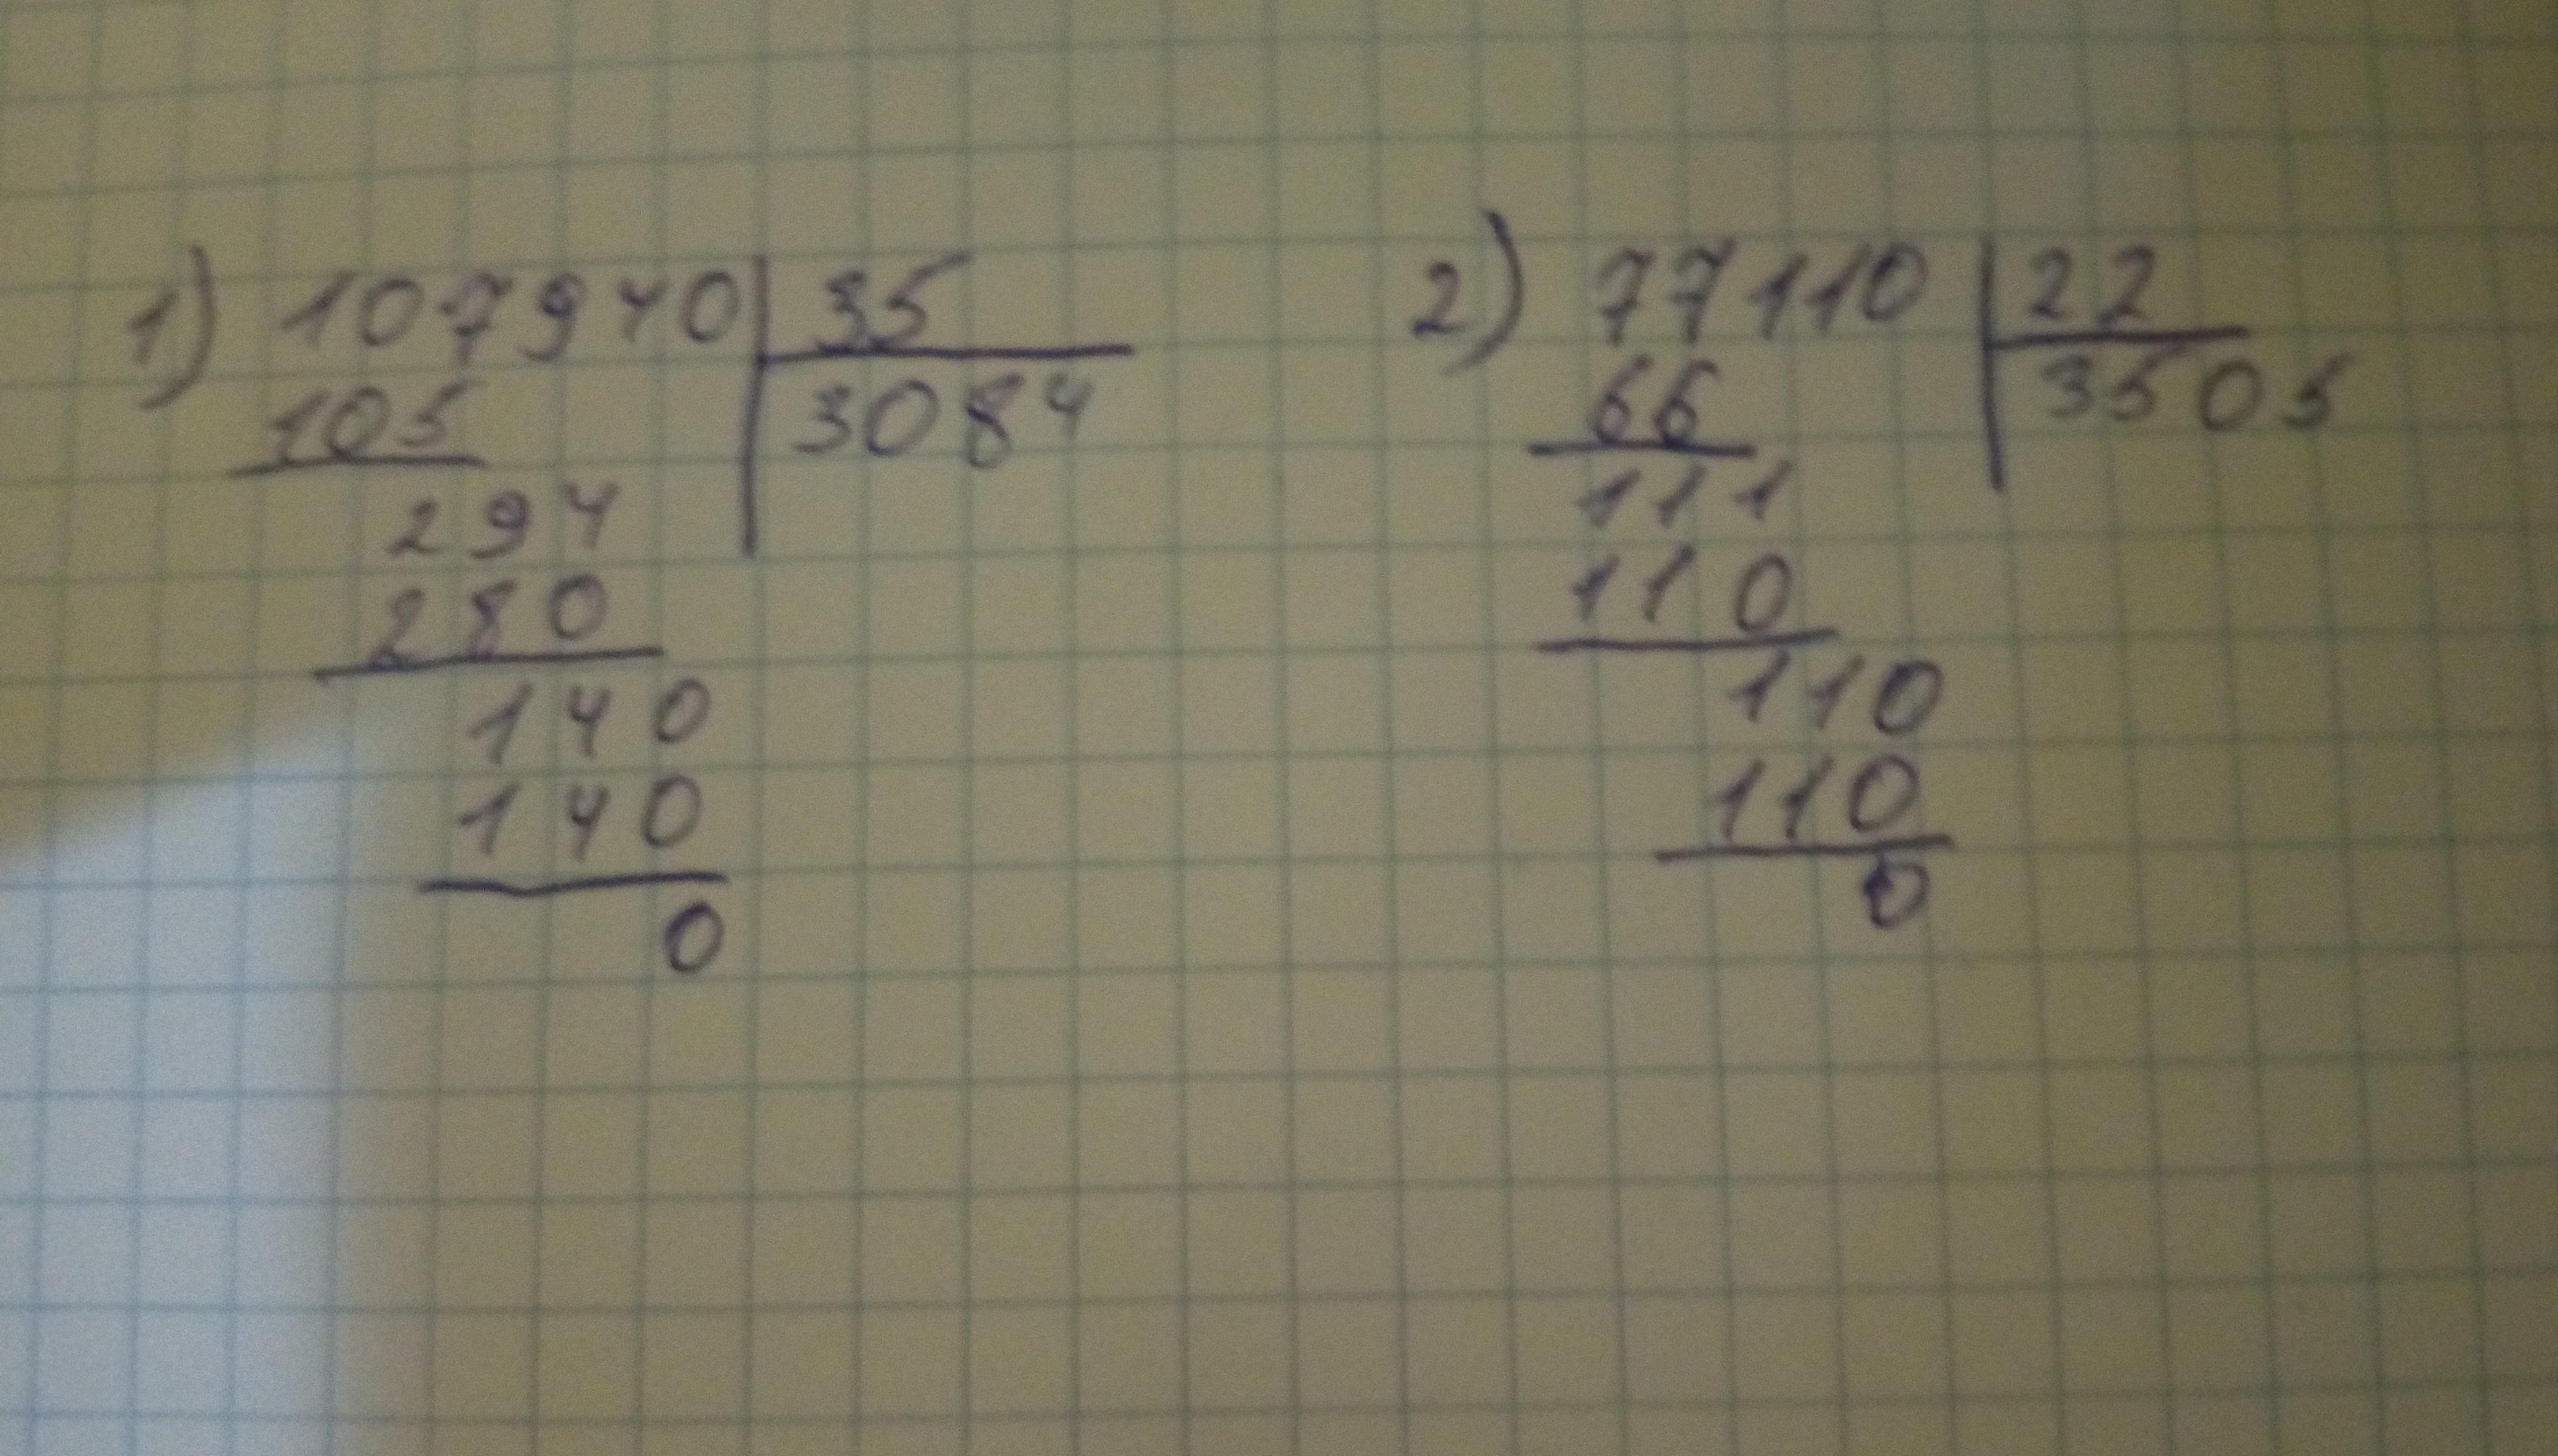 1) 107940 35
105 3084
294
280
140
140
0
2) 77110 22
66 3505
111
110
110
110
0